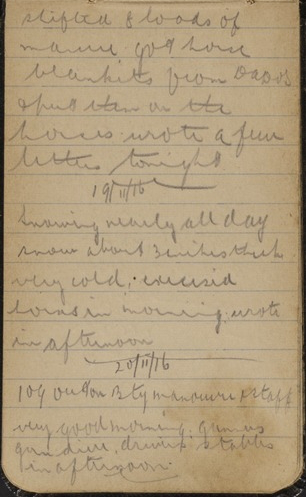 shifted 8 loads of
manure got horse
blankets from DADOS
& put them on the
horses wrote a few
letters tonight
19/11/16
Snowing nearly all day
snow about 3 inches thick
very cold, exercised
horses in morning, wrote
in afternoon
20/11/16
109 out on Bty manouvre & staff
very good morning. gunners
gun drill, drivers stables
in afternoon.